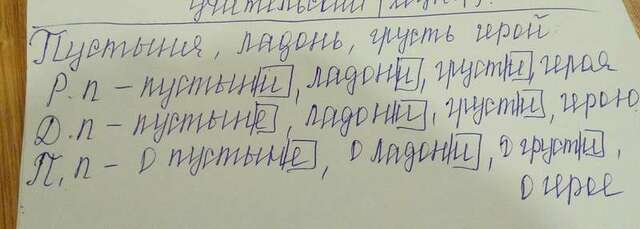 учительский
Пустыня, ладонь, грусть герой.
Р.п - пустыни, ладони, грусти, героя
Д.п - пустыне, ладони, грусти, герою
П.п - о пустыне, о ладони, о грусти,
о герое